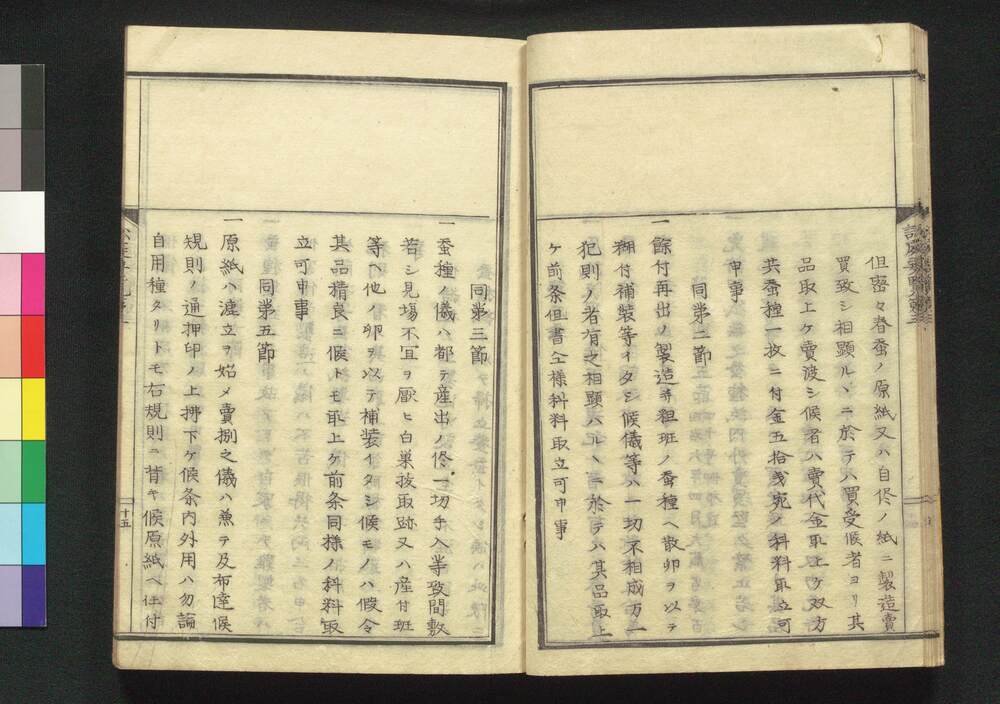 但密々春蚕ノ原紙又ハ自侭ノ紙ニ製造賣
買致シ相顕ルヽニ於テハ買受候者ヨリ其
品取上ケ賣渡シ候者ハ賣代金取上ケ双方
共蚕種一枚ニ付金五拾銭宛ノ科料取立可
申事
同第二節
一餘付再出ノ製造并粗班ノ蚕種ヘ散卵ヲ以テ
糊付補装等イタシ候儀等ハ一切不相成万一
犯則ノ者有之相顕ハルヽニ於テハ其品取上
ケ前条但書仝様科料取立可申事
同第三節
一蚕種ノ儀ハ都テ産出ノ侭一切手入等致間敷
若シ見場不冝ヲ厭ヒ白巣抜取跡又ハ産付班
等ヘ他ノ卵ヲ以テ補装イタシ候モノハ假令
其品精良ニ候トモ取上ケ前条同様ノ科料取
立可申事
同第五節
一原紙ハ漉立ヲ始メ賣捌之儀ハ兼テ及布達候
規則ノ通押印ノ上拂下ケ候条内外用ハ勿論
自用種タリトモ右規則ニ背キ候原紙ヘ仕付
十五